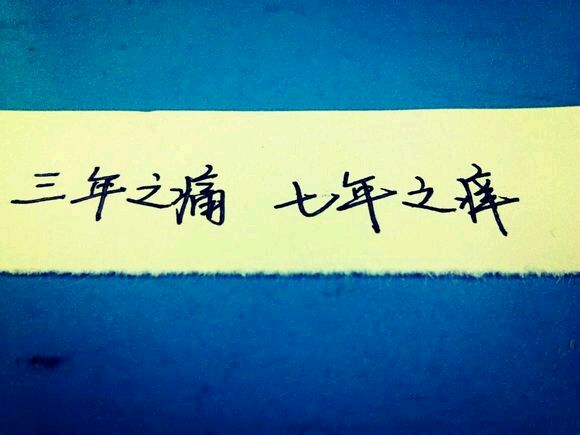 三年之痛 七年之痒